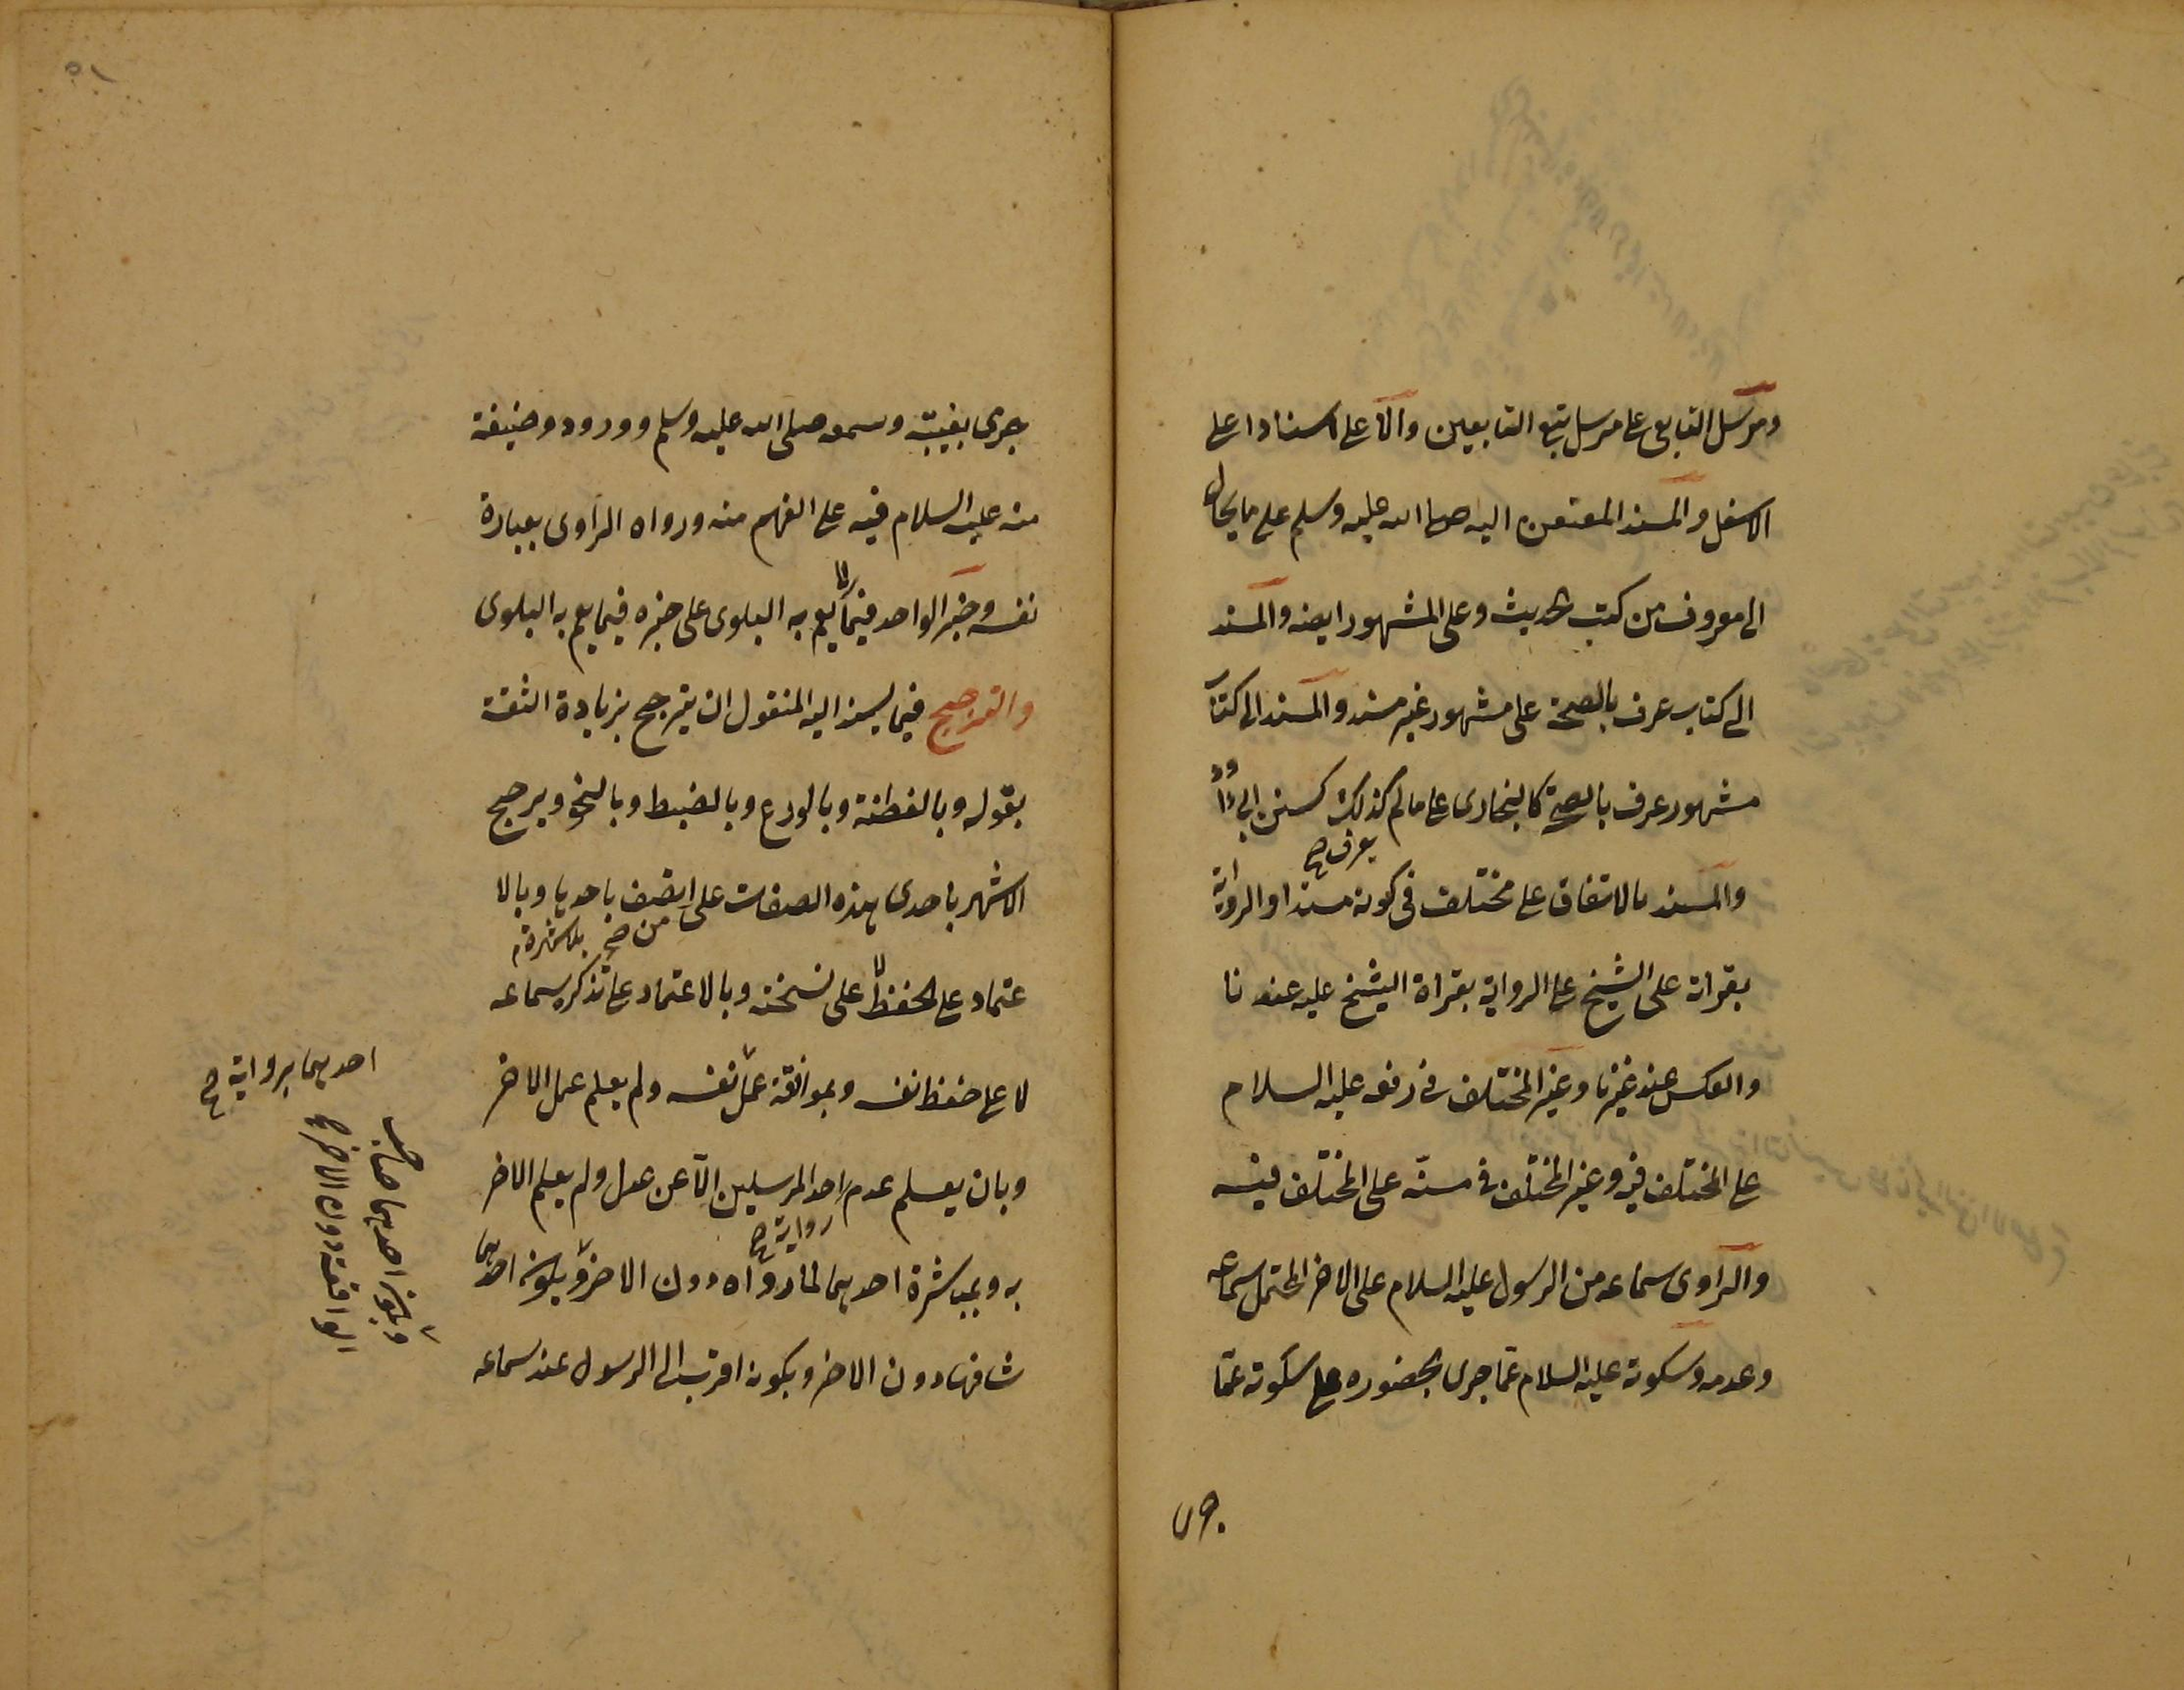 ومرسل التابعى على مرسل تبع التابعين والاعلى اسنادا على
الاسفل والمسند المعنعن اليه صلى الله عليه وسلم على ما يحال
الى معروف من كتب الحديث وعلى المشهور ايضه والمسند
الى كتاب عرف بالصحة على مشهور غير مسند والمسند الى كتاب
مشهور عرف بالصحة كالبخارى على ما لم كذلك كسنن ابى داود
يعرف صح
والمسند بالاتفاق على مختلف فى كونه مسندا والرواية
بقراته على الشيخ على الرواية بقراة الشيخ عليه عندنا
والعكس عند غيرنا وغير المختلف فى رفعه عليه السلام
على المختلف فيه وغير المختلف فى منه على المختلف فيه
والراوى سماعه من الرسول عليه السلام على الاخر المحتمل سماعه
وعدمه وسكوته عليه السلام عمّا جرى بحضوره على سكوته عمّا
جرى
٥١
جرى بغيبته وسمعه صلى الله عليه وسلم وورود وصيغة
منه عليه السلام فيه على الفهم منه ورواه الراوى بعبارة
نفسه وخبر الواحد فيما لا يعم به البلوى على خبره فيما يعم به البلوى
والترجيح فيما يسند اليه المنقول ان يترجح بزيادة الثقة
بقوله وبالفطنة وبالورع وبالضبط وبالنحو ويرجح
الاشهر باحدى هذه الصفات على من اتصف باحديها وبالا
من صح بلا شهرة
عتماد على الحفظ لا على نسخته وبالاعتماد على تذكر سماعه
لا على حفظ نفسه وبموافقة عمل نفسه ولم يعلم عمل الاخر
احديهما برواية صح
وبان يعلم عدم احد المرسلين الا عن عدل ولم يعلم الاخر
رواية صح
به وبمباشرة احديهما لما رواه دون الاخر وبكونه احديهما
وبكون احديهما صاحب
الواقعة دون الاخر صح
شافها دون الاخر وبكونه اقرب الى الرسول عند سماعه